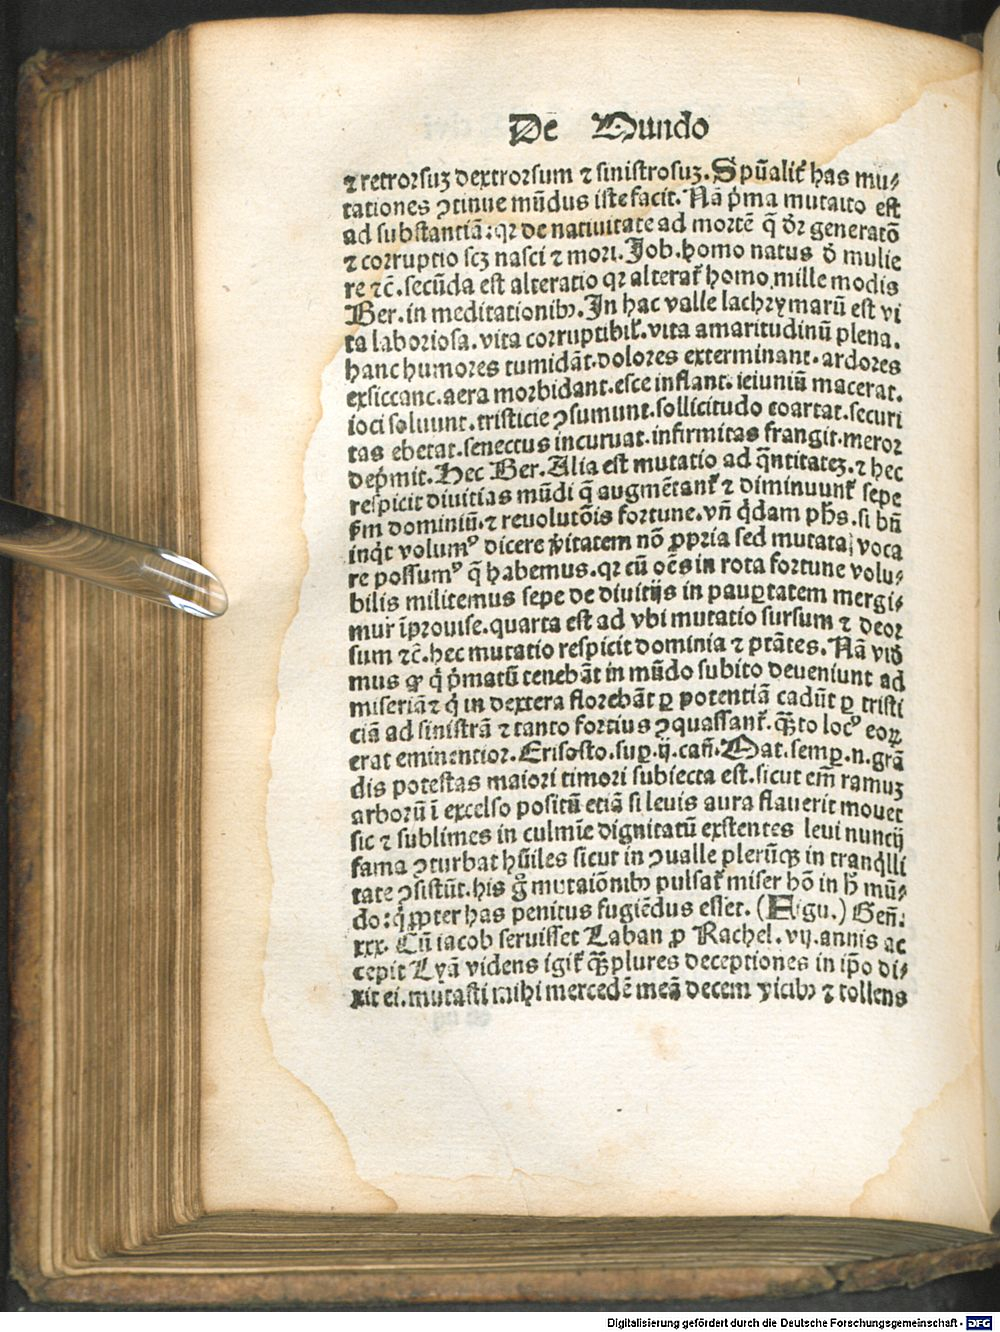 De Mundo
⁊ retrorsuꝫ dextrorsum ⁊ sinistrosuꝫ. Spũalit̃ has mu⸗
tationes ꝯtinue mũdus iste facit. Nã p̃ma mutaito est
ad substantiã: qꝛ de natiuitate ad mortẽ q̃ dr̃ generatõ
⁊ corruptio scꝫ nasci ⁊ mori. Job. homo natus d̉ mulie
re ⁊c̃. secũda est alteratio qꝛ alterat̃ homo mille modis
Ber. in meditationibꝰ. In hac valle lachrymarũ est vi
ta laboriosa. vita corruptibil̃. vita amaritudinũ plena.
hanc humores tumidãt. dolores exterminant. ardores
exsiccanc. aera morbidant. esce inflant. ieiuniũ macerat.
ioci soluunt. tristicie ꝯsumunt. sollicitudo coartat. securi
tas ebetat. senectus incuruat. infirmitas frangit. meror
dep̃mit. Hec Ber. Alia est mutatio ad q̃ntitateꝫ. ⁊ hec
respicit diuitias mũdi q̃ augmẽtant̃ ⁊ diminuunt̃ sepe
ẜm dominiũ. ⁊ reuolutõis fortune. vñ q̓dam ph̃s. si bñ
inq̓t volumꝰ dicere v̓itatem nõ ꝓpria sed mutata voca
re possumꝰ q̃ habemus. qꝛ cũ oẽs in rota fortune volu⸗
bilis militemus sepe de diuitijs in pauꝑtatem mergi⸗
mur ĩprouise. quarta est ad vbi mutatio sursum ⁊ deor
sum ⁊c̃. hec mutatio respicit dominia ⁊ ptãtes. Nã vid̓
mus ꝙ q̓ p̓matũ tenebãt in mũdo subito deueniunt ad
miseriã ⁊ q̓ in dextera florebãt ꝑ potentiã cadũt ꝑ tristi
ciã ad sinistrã ⁊ tanto fortius ꝯquassant̃. q̃ꝫto locꝰ eoꝝ
erat eminentior. Crisosto. suꝑ. ij. cañ. Mat. semꝑ. n. grã
dis potestas maiori timori subiecta est. sicut em̃ ramuꝫ
arborũ ĩ excelso positũ etiã si leuis aura flauerit mouet
sic ⁊ sublimes in culmĩe dignitatũ exstentes leui nuncij
fama ꝯturbat hũiles sicut in ꝯualle plerũqꝫ in tranq̓lli
tate ꝯsistũt. his g̊ mutaiõnibꝰ pulsat̃ miser hõ in h̓ mũ⸗
do: q̓ ꝓpter has penitus fugiẽdus esset. (Figu.) Geñ.
xxx. Cũ iacob seruisset Laban ꝓ Rachel. vij. annis ac
cepit Lyã videns igit̃ q̃ꝫ plures deceptiones in ip̃o di⸗
xit ei. mutasti mihi mercedẽ meã decem vicibꝰ ⁊ tollens
Digitalisierung gefördert durch die Deutsche Forschungsgemeinschaft - DFG